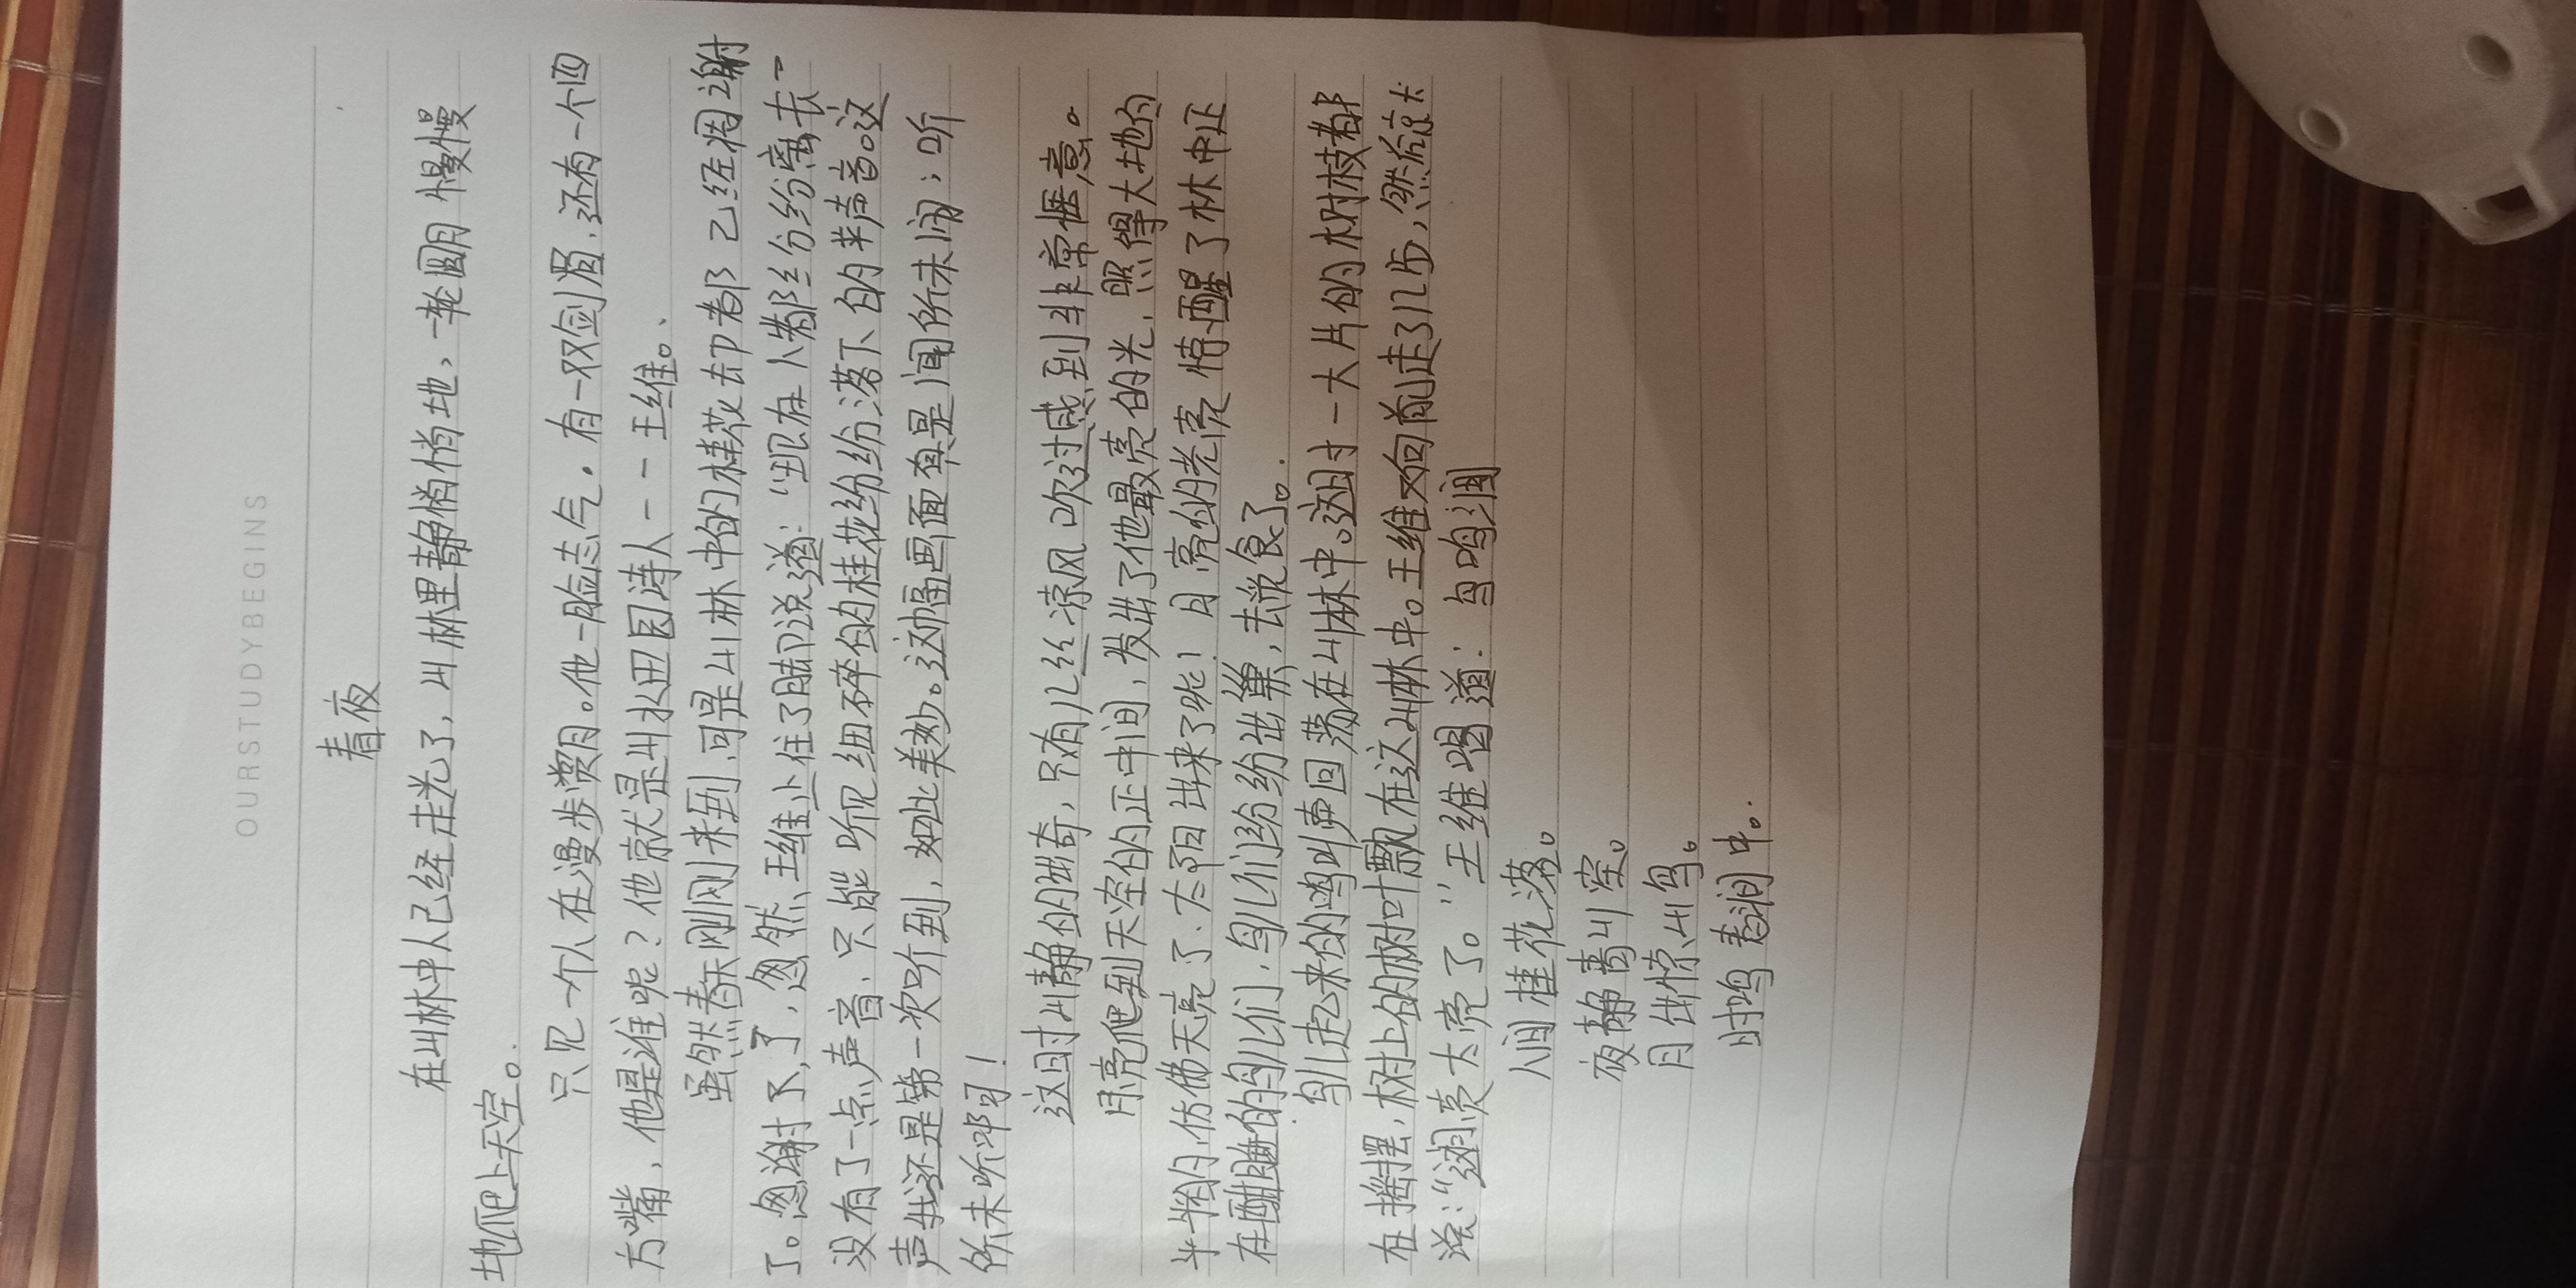 OURSTUDYBEGINS
春夜
在山林中人已经走光了，山林里静悄悄地，一轮圆月慢慢
地爬上天空。
只见一个人在漫步赏月。他一脸志气，有一双剑眉，还有一个四
方嘴，他是谁呢？他就是山水田园诗人--王维。
虽然春天刚刚来到，可是山林中的桂花却都已经凋谢
了。忽谢了，了，忽然，王维止住了脚说道：“现在人都纷纷离去一
没有了一点声音，只能听见细碎的桂花纷纷落下的声音。这
声我还是第一次听到，如此美妙。这幅画面真是闻所未闻；听
所未听啊！
这时山静的出奇，只有几丝凉风吹过感到非常惬意。
月亮爬到天空的正中间，发出了他最亮的光，照得大地的
仿佛天亮了、太阳出来了呢！月亮的光亮惊醒了林中正
在酣睡的鸟儿们，鸟儿们纷纷出巢，去觅食了。
鸟儿起来的鸣叫声回荡在山林中。这时一大片的树枝都
在摇摆，树上的树叶飘在这山林中。王维又向前走了几步，然后大
说：“月亮太亮了。”王维唱道：鸟鸣涧
人间桂花落。
夜静春山空。
月出惊山鸟。
时鸣春涧中。